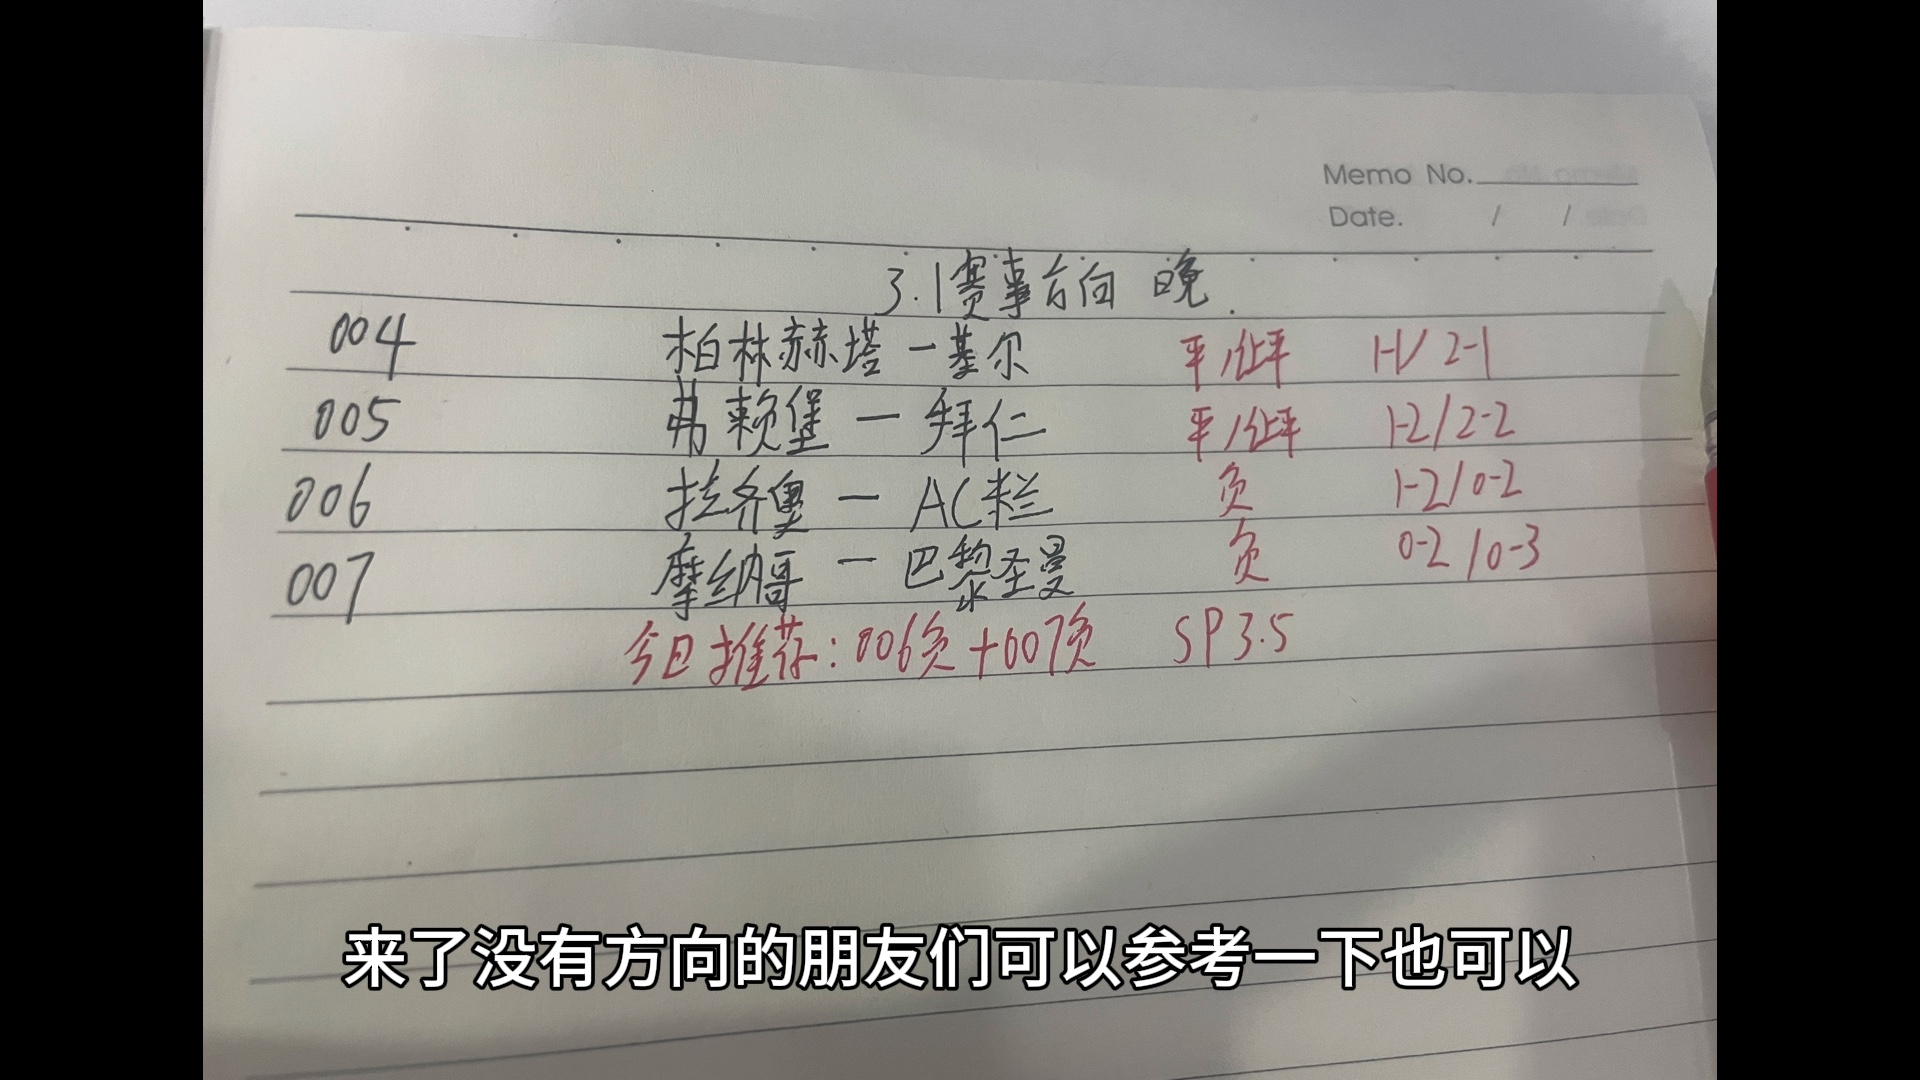 Memo No.
Date. / /
3.1赛事方向 晚.
004 柏林赫塔-基尔 平/让平 1-1/2-1
005 弗赖堡-拜仁 平/让平 1-2/2-2
006 拉齐奥-AC米兰 负 1-2/0-2
007 摩纳哥-巴黎圣曼 负 0-2/0-3
今日推荐:006负+007负 SP3.5
来了没有方向的朋友们可以参考一下也可以